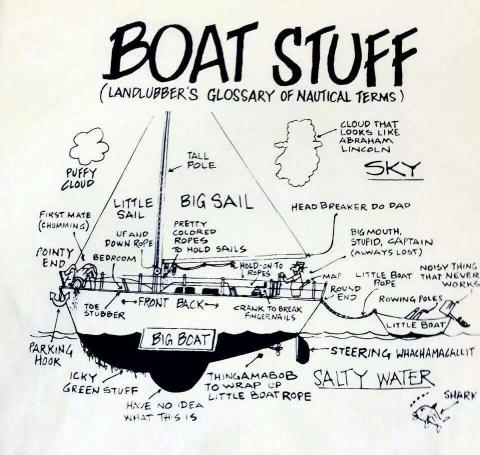 BOAT STUFF
(LANDLUBBER'S GLOSSARY OF NAUTICAL TERMS)
PUFFY
CLOUD
TALL
POLE
CLOUD THAT
LOOKS LIKE
ABRAHAM
LINCOLN
SKY
LITTLE
SAIL
BIG SAIL
FIRST MATE
(CHUMMING)
UP AND
DOWN ROPE
PRETTY
COLORED
ROPES
TO HOLD SAILS
HEAD BREAKER DO DAD
BIG MOUTH,
STUPID, CAPTAIN
(ALWAYS LOST)
POINTY
END
BEDROOM
HOLD-ON-TO
ROPES
MAP
ROUND
END
LITTLE BOAT
ROPE
NOISY THING
THAT NEVER
WORKS
ROWING POLES
LITTLE BOAT
TOE
STUBBER
FRONT BACK
CRANK TO BREAK
FINGERNAILS
BIG BOAT
PARKING
HOOK
ICKY
GREEN STUFF
HAVE NO IDEA
WHAT THIS IS
THINGAMABOB
TO WRAP UP
LITTLE BOAT ROPE
STEERING WHACHAMACALLIT
SALTY WATER
SHARK